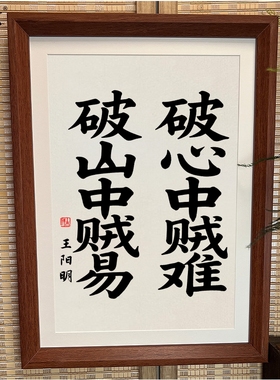 破心中贼难
破山中贼易
王阳明